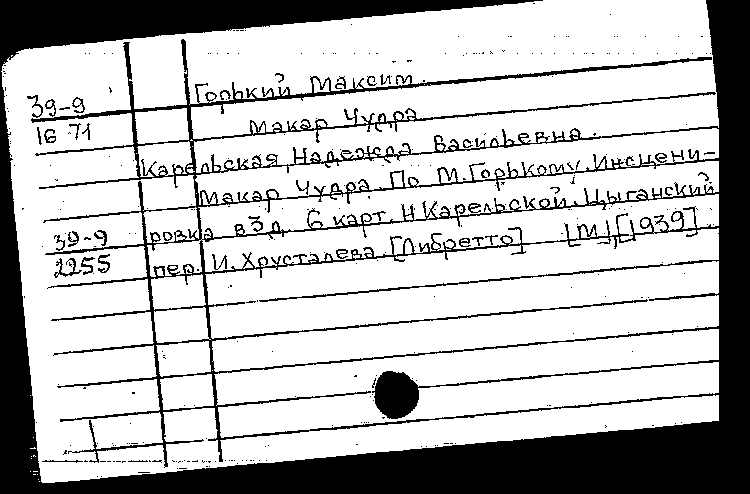 39-9 Горький, Максим.
16 71 Макар Чудра
Карельская, Надежда Васильевна.
Макар Чудра. По М.Горькому. Инсцени-
39-9 ровка в 3 д. 6 карт. Н Карельской. Цыганский
2255 пер. И. Хрусталева. [Либретто] [М], [1939].